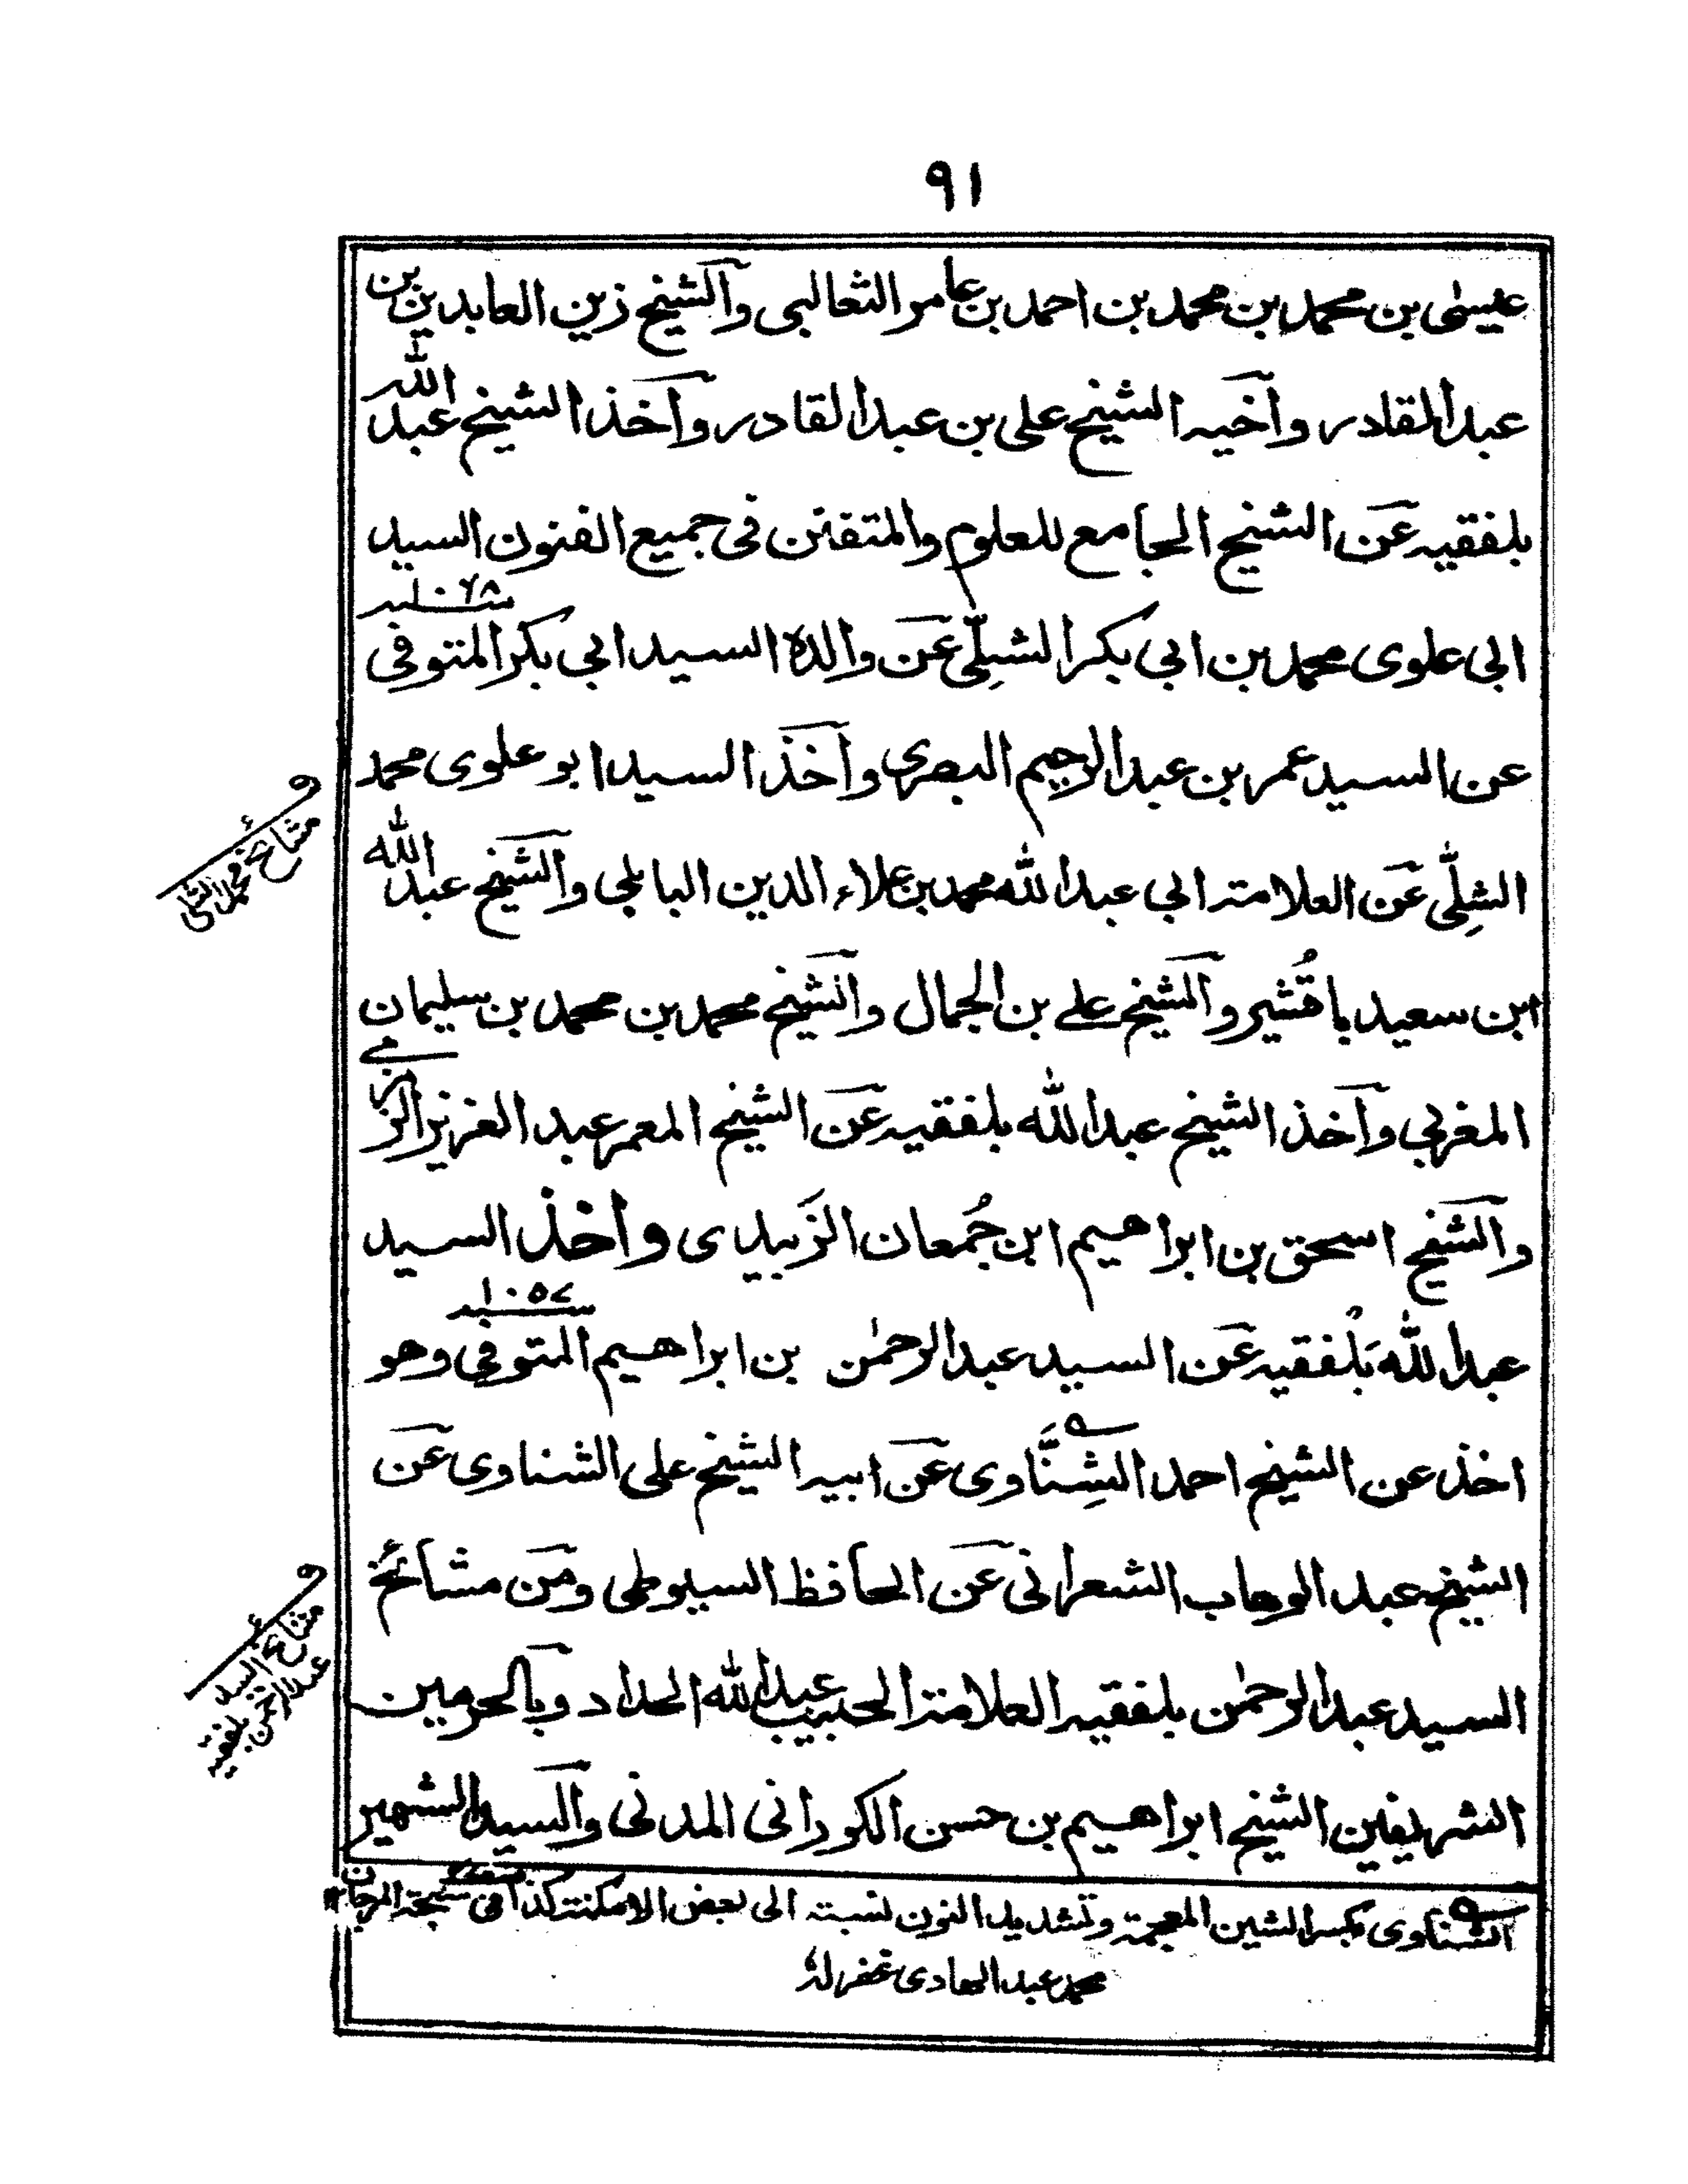 ٩١
عيسى بن محمد بن محمد بن احمد بن عامر الثعالبى والشيخ زين العابدين بن
عبد القادر وأخيه الشيخ على بن عبد القادر وأخذ الشيخ عبد الله
بلفقيه عن الشيخ الجامع للعلوم والمتفنن فى جميع الفنون السيد
ابى علوى محمد بن ابى بكر الشلّى عن والده السيد ابى بكر المتوفى سنة ١٠٦٨
عن السيد عمر بن عبد الرحيم البصرى وأخذ السيد ابو علوى محمد
الشلّى عن العلامة ابى عبد الله محمد بن علاء الدين البابلى والشيخ عبد الله
ابن سعيد باقُشير والشيخ على بن الجمال والشيخ محمد بن محمد بن سليمان
المغربى وأخذ الشيخ عبد الله بلفقيه عن الشيخ المعمر عبد العزيز الزمزمى
والشيخ اسحق بن ابراهيم ابن جُمعان الزَبيدى وأخذ السيد
عبد الله بَلْفقيه عن السيد عبد الرحمٰن بن ابراهيم المتوفى سنة ١٠٥٧ وهو
اخذ عن الشيخ احمد الشِنَّاوى عن ابيه الشيخ على الشناوى عن
الشيخ عبد الوهاب الشعرانى عن الحافظ السيوطى ومن مشائخ
السيد عبد الرحمٰن بلفقيه العلامة الحبيب عبد الله الحداد وبالحرمين
الشريفين الشيخ ابراهيم بن حسن الكورانى المدنى والسيد الشهير
الشناوى بكسر الشين المعجمة وتشديد النون نسبة الى بعض الامكنة كذا فى سبحة المرجان
محمد عبد الهادى غفر له
مشائخ محمد الشلى
مشائخ السيد
عبد الرحمن بلفقيه